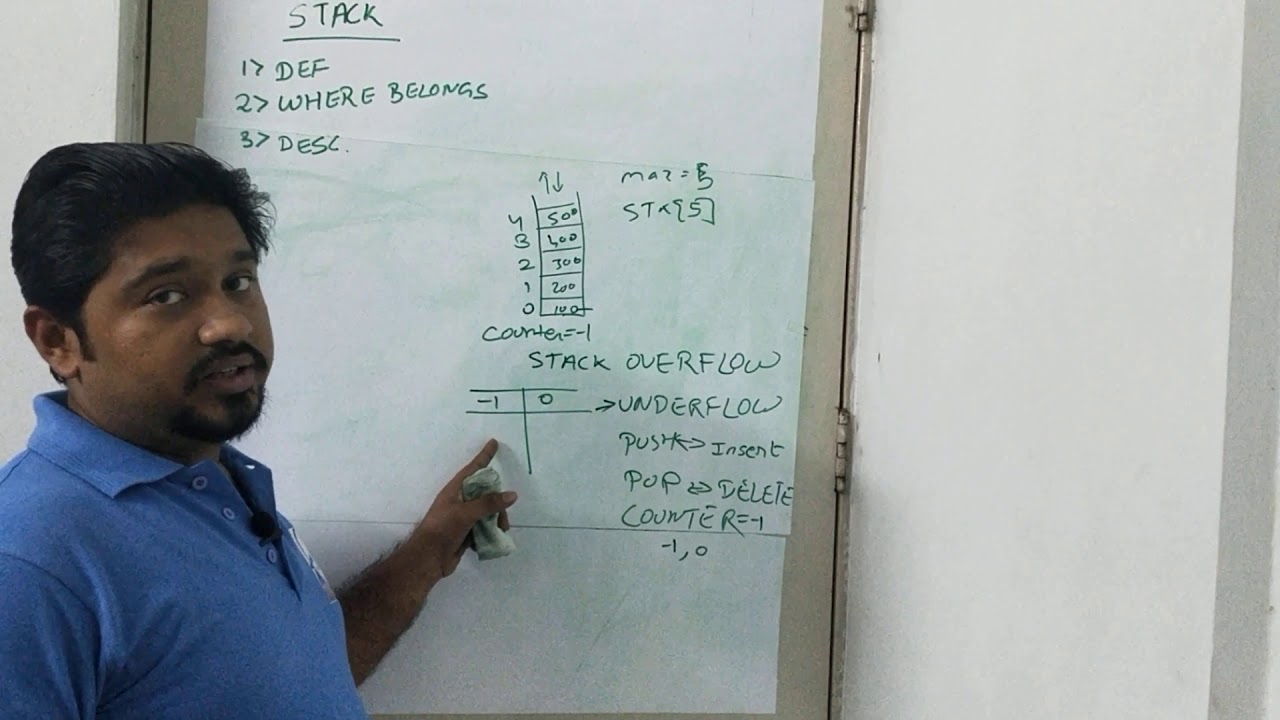 STACK
1> DEF
2> WHERE BELONGS
3> DESC.
max = 5
STK[5]
4 500
3 400
2 300
1 200
0 100
Counter=-1
STACK OVERFLOW
-1 0 → UNDERFLOW
PUSH <=> Insert
POP <=> DELETE
COUNTER=-1
-1, 0